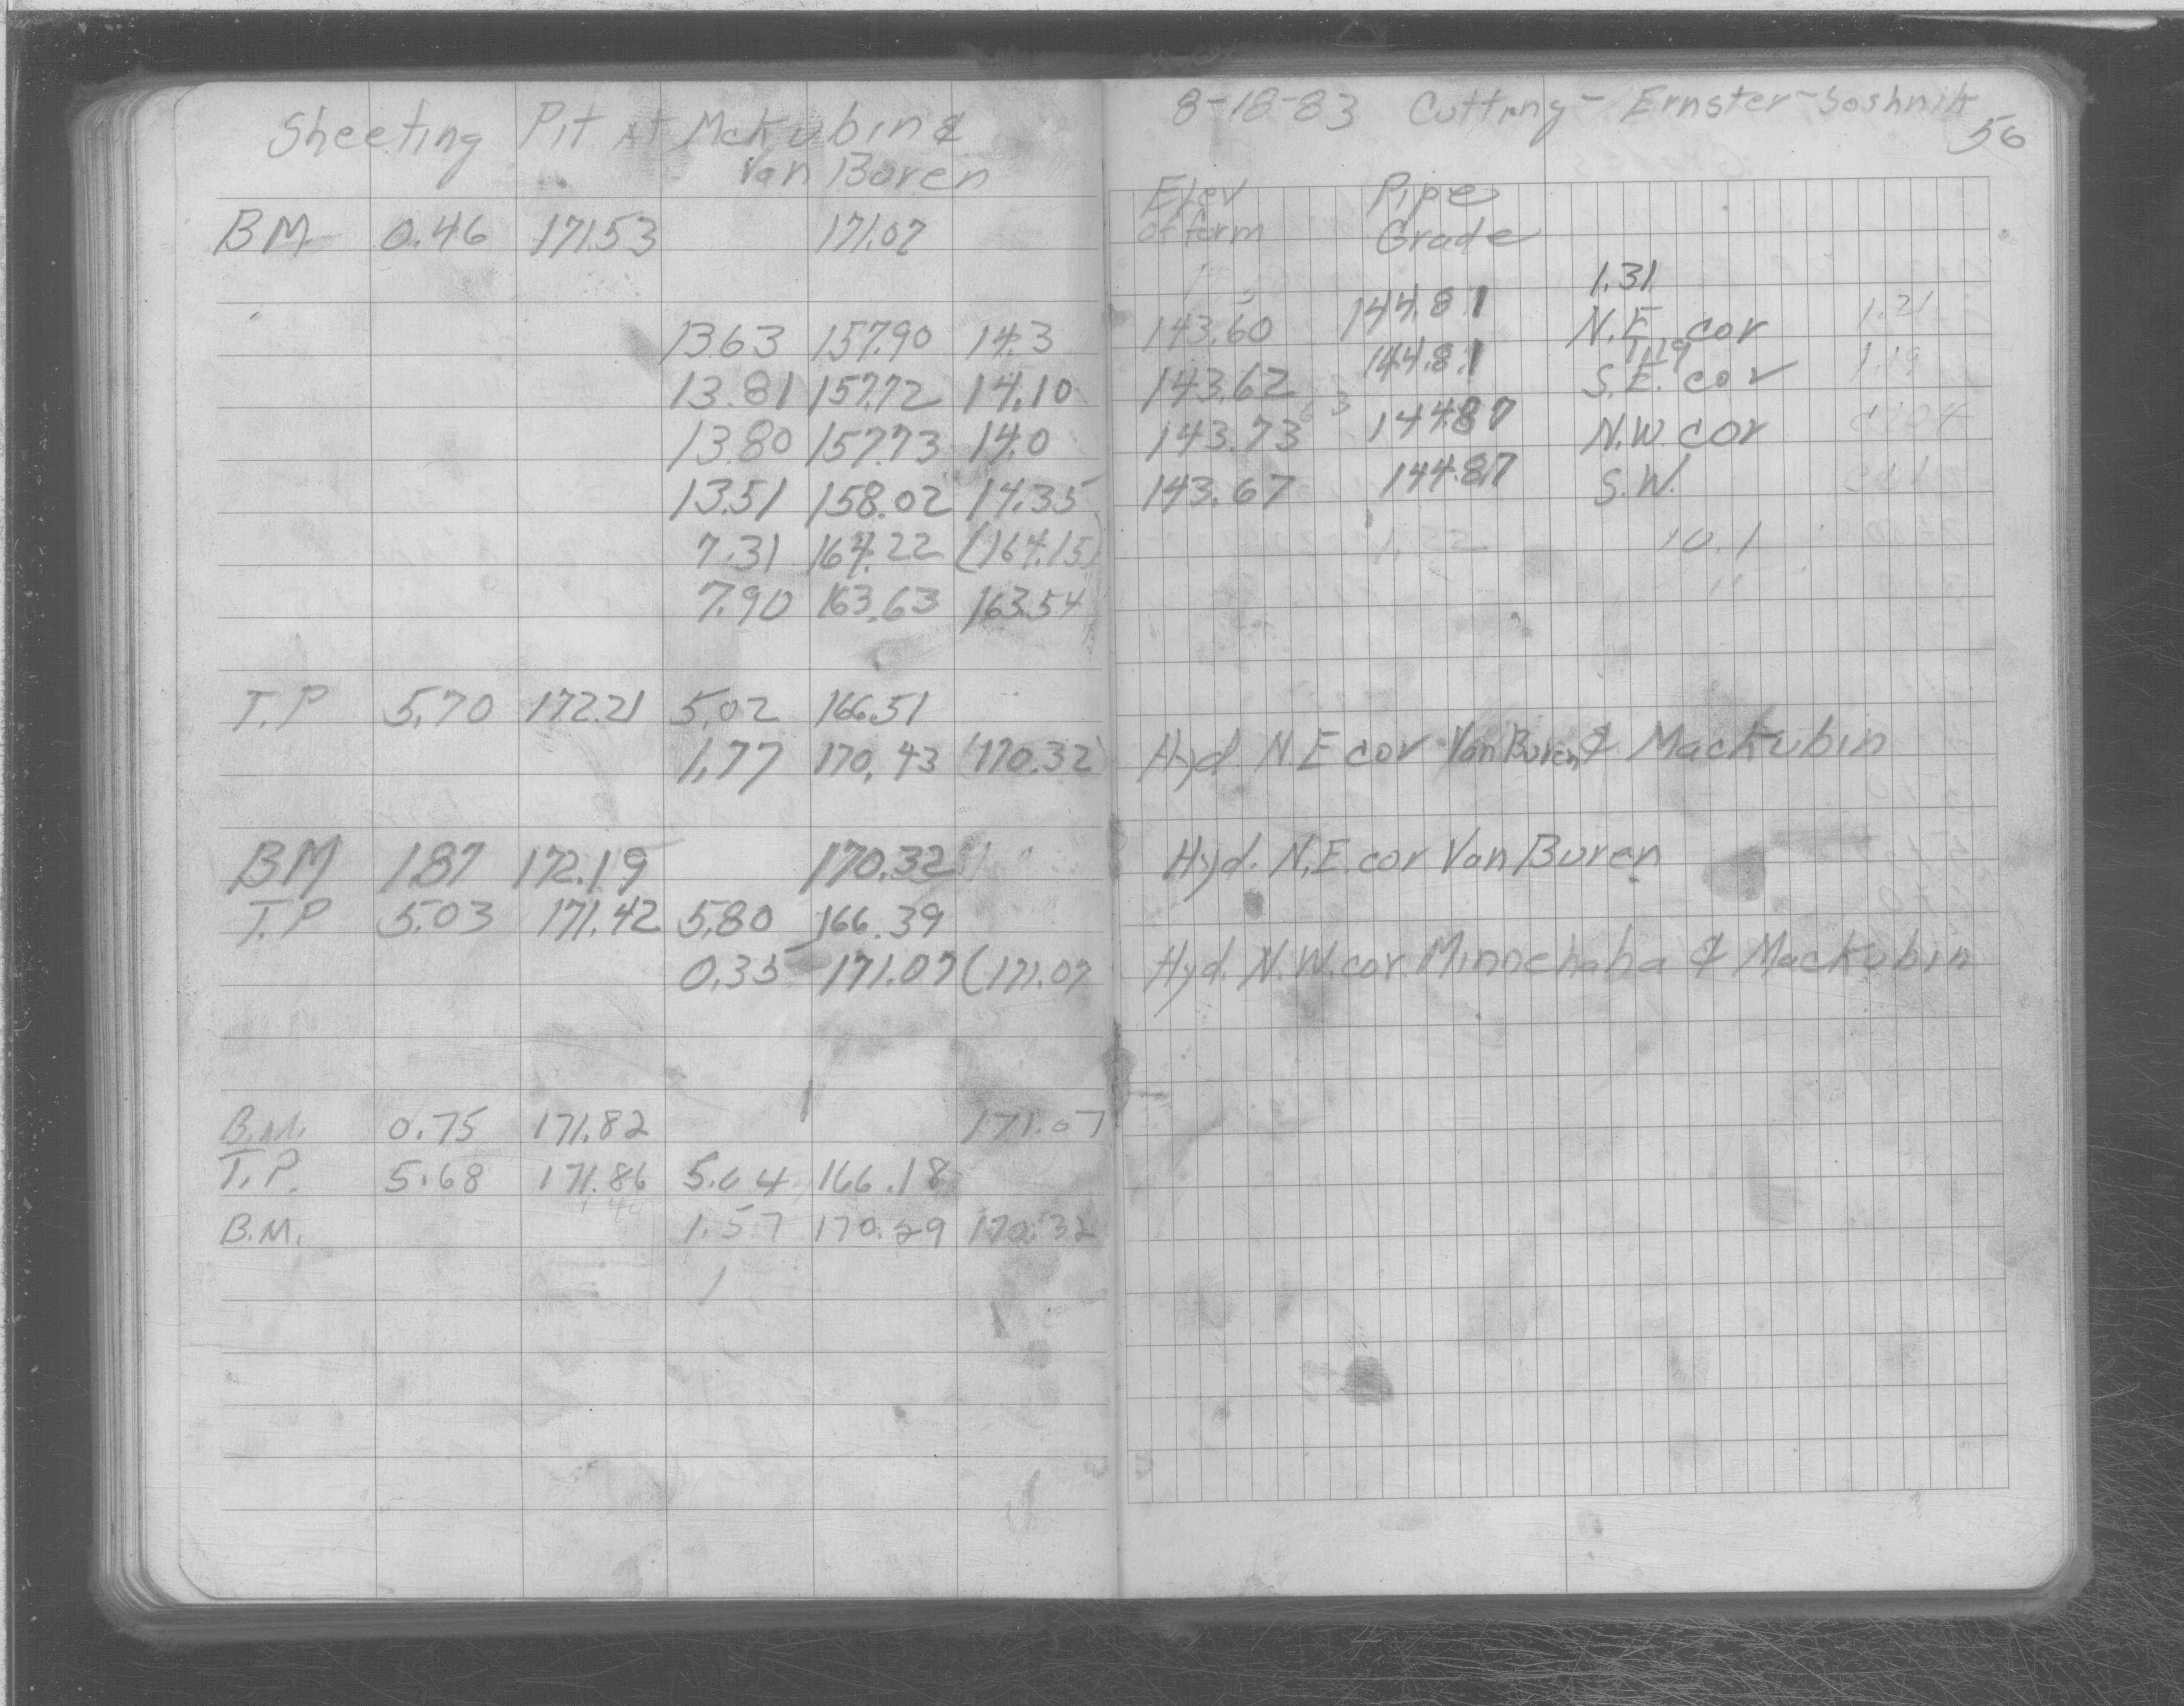 Sheeting Pit At McKubin &
Van Buren
BM 0.46 171.53 171.07
13.63 157.90 14.3
13.81 157.72 14.10
13.80 157.73 14.0
13.51 158.02 14.35
7.31 164.22 (164.15)
7.90 163.63 163.54
T.P 5.70 172.21 5.02 166.51
1.77 170.43 (170.32)
BM 1.87 172.19 170.32
T.P 5.03 171.42 5.80 166.39
0.35 171.07 (171.07
B.M. 0.75 171.82 171.07
T.P. 5.68 171.86 5.64 166.18
B.M. 1.57 170.29 170.32
8-18-83 Cutting - Ernster - Soshnik
56
Elev Pipe
of form Grade
1.31
143.60 144.81 N.E. cor 1.21
1.19
143.62 144.81 S.E. cor 1.19
143.73 144.87 N.W. cor
143.67 144.87 S.W.
10.1
Hyd N.E cor Van Buren & Mackubin
Hyd. N.E. cor Van Buren
Hyd. N.W. cor. Minnehaha & Mackubin